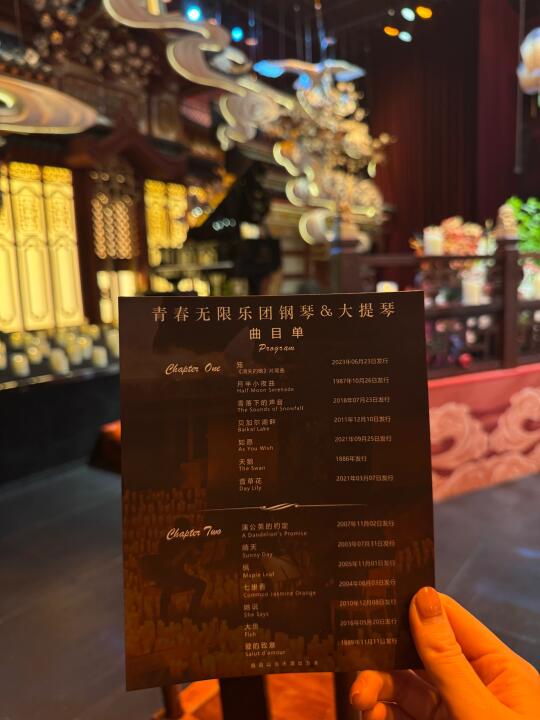 青春无限乐团钢琴&大提琴
曲目单
Program
Chapter One
笼 2023年06月23日发行
《消失的她》片尾曲
月半小夜曲 1987年10月26日发行
Half Moon Serenade
雪落下的声音 2018年07月23日发行
The Sounds of Snowfall
贝加尔湖畔 2011年12月10日发行
Baikal Lake
如愿 2021年09月25日发行
As You Wish
天鹅 1886年发行
The Swan
萱草花 2021年03月07日发行
Day Lily
Chapter Two
蒲公英的约定 2007年11月02日发行
A Dandelion's Promise
晴天 2003年07月31日发行
Sunny Day
枫 2005年11月01日发行
Maple Leaf
七里香 2004年08月03日发行
Common Jasmine Orange
她说 2010年12月08日发行
She Says
大鱼 2016年05月20日发行
Fish
爱的致意 1889年11月11日发行
Salut d'amour